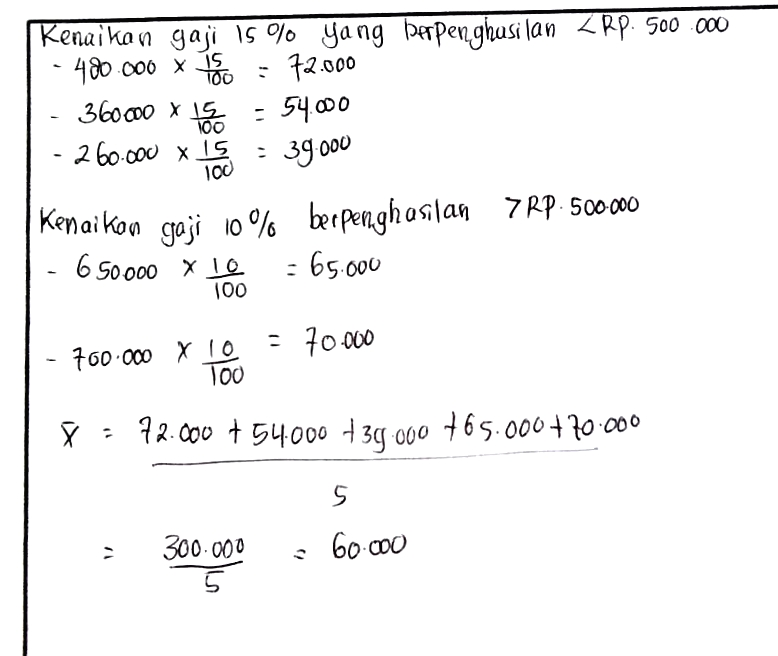 Kenaikan gaji 15 % yang berpenghasilan < RP. 500.000
- 480.000 x 15/100 = 72.000
- 360000 x 15/100 = 54.000
- 260.000 x 15/100 = 39.000
Kenaikan gaji 10 % berpenghasilan > RP. 500.000
- 650.000 x 10/100 = 65.000
- 700.000 x 10/100 = 70.000
x̄ = 72.000 + 54.000 + 39.000 + 65.000 + 70.000
5
= 300.000/5 = 60.000